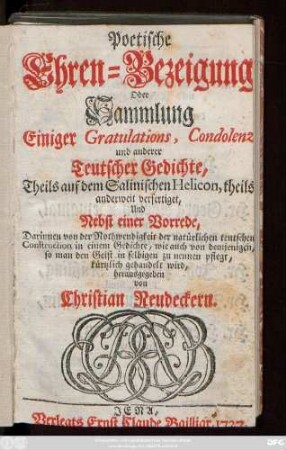 Poetische
Ehren-Bezeigung
Oder
Sammlung
Einiger Gratulations, Condolenz
und anderer
Teutscher Gedichte,
Theils auf dem Salinischen Helicon, theils
anderweit verfertiget,
Und
Nebst einer Vorrede,
Darinnen von der Nothwendigkeit der natürlichen teutschen
Construction in einem Gedichte, wie auch von demjenigen,
so man den Geist in selbigen zu nennen pflegt,
kürtzlich gehandelt wird,
herausgegeben
von
Christian Neudeckern.
JENA,
Verlegts Ernst Claude Bailliar, 1727.